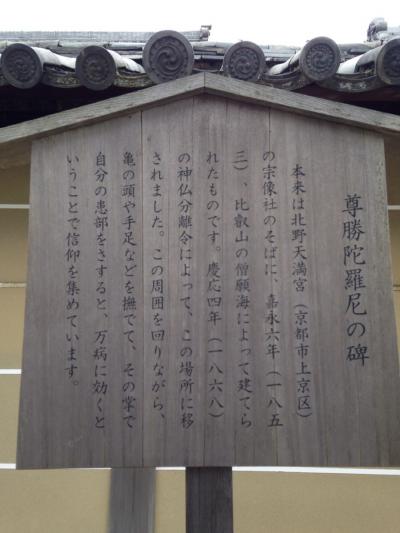 尊勝陀羅尼の碑
本来は北野天満宮（京都市上京区）
の宗像社のそばに、嘉永六年（一八五
三）、比叡山の僧願海によって建てら
れたものです。慶応四年（一八六八）
の神仏分離令によって、この場所に移
されました。この周囲を回りながら、
亀の頭や手足などを撫でて、その掌で
自分の患部をさすると、万病に効くと
いうことで信仰を集めています。